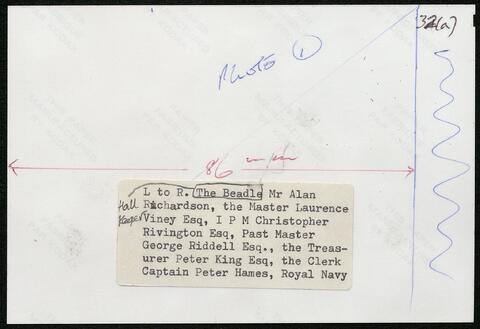 32(a)
Photo 1
86 m/m
Hall
Keeper
L to R. The Beadle Mr Alan
Richardson, the Master Laurence
Viney Esq, I P M Christopher
Rivington Esq, Past Master
George Riddell Esq., the Treas-
urer Peter King Esq, the Clerk
Captain Peter Hames, Royal Navy